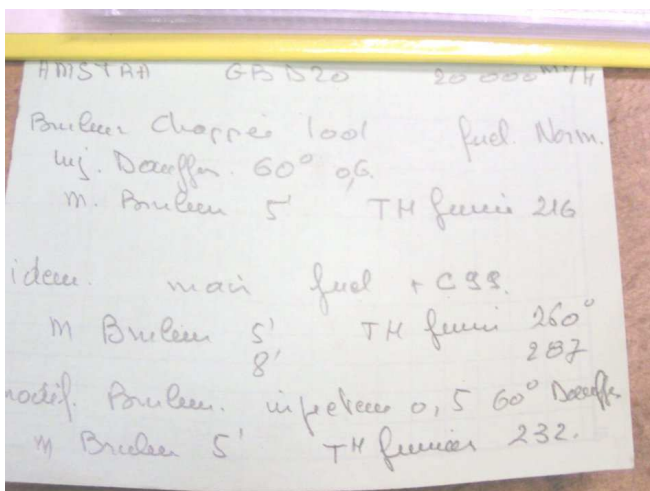 AMSTRA GBD20 20 000 m³/H
Bruleur Chappée 1001 fuel. Norm.
inj. Danffos. 60° 0,6.
m. Bruleur 5' TH fumée 216
idem. mais fuel + C99.
m Bruleur 5' TH fumé 260°
8' 287
modif. Bruleur. injecteur 0,5 60° Danffos
m Bruleur 5' TH fumées 232.